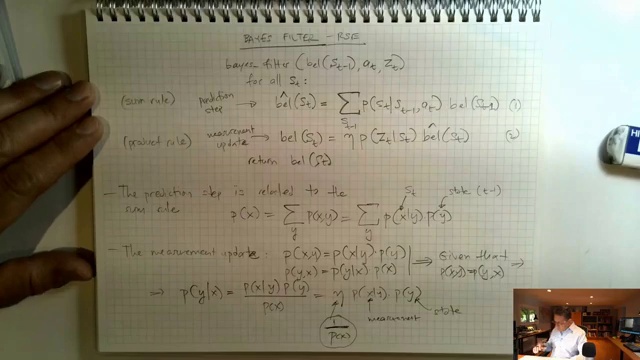 BAYES FILTER - RSE
bayes filter (bel(S_{t-1}), a_t, Z_t)
for all S_t:
(sum rule) prediction step → bel^(S_t) = Σ_{S_{t-1}} p(S_t|S_{t-1}, a_t) bel(S_{t-1}) (1)
(product rule) measurement update → bel(S_t) = η p(Z_t|S_t) bel^(S_t) (2)
return bel(S_t)
- The prediction step is related to the
sum rule p(x) = Σ_y p(x,y) = Σ_y p(x|y) p(y)
S_t state (t-1)
- The measurement update: p(x,y) = p(x|y) · p(y)
p(y,x) = p(y|x) p(x) ⟹ Given that p(x,y) = p(y,x) ⟹
⟹ p(y|x) = p(x|y) p(y) / p(x) = η p(x|y) · p(y)
1/p(x) measurement state
HI